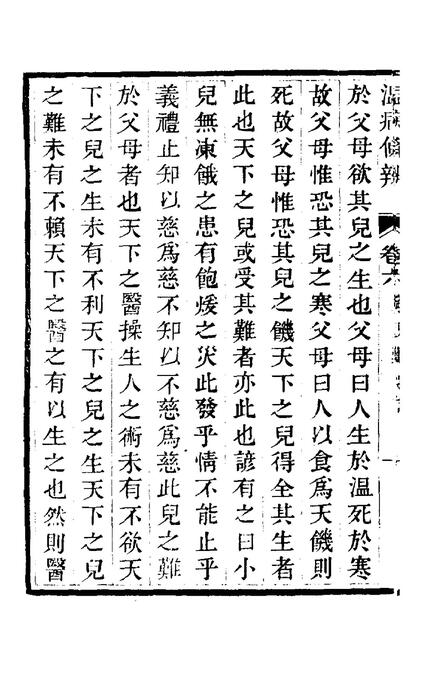 溫病條辨 卷六
於父母欲其兒之生也父母曰人生於溫死於寒
故父母惟恐其兒之寒父母曰人以食爲天饑則
死故父母惟恐其兒之饑天下之兒得全其生者
此也天下之兒或受其難者亦此也諺有之曰小
兒無凍餓之患有飽煖之災此發乎情不能止乎
義禮止知以慈爲慈不知以不慈爲慈此兒之難
於父母者也天下之醫操生人之術未有不欲天
下之兒之生未有不利天下之兒生天下之兒
之難未有不賴天下之醫之有以生之也然則醫